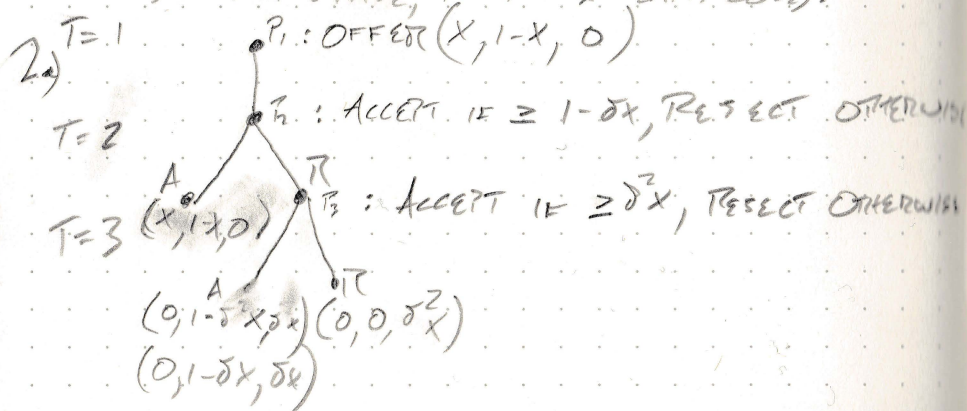 2a)
T=1
P₁ : OFFER (X, 1-X, 0)
T=2
P₂ : ACCEPT IF ≥ 1-δX, REJECT OTHERWISE
A R
T=3
(X, 1-X, 0)
P₃ : ACCEPT IF ≥ δ²X, REJECT OTHERWISE
A R
(0, 1-δ²X, δX) (0, 0, δ²X)
(0, 1-δX, δX)